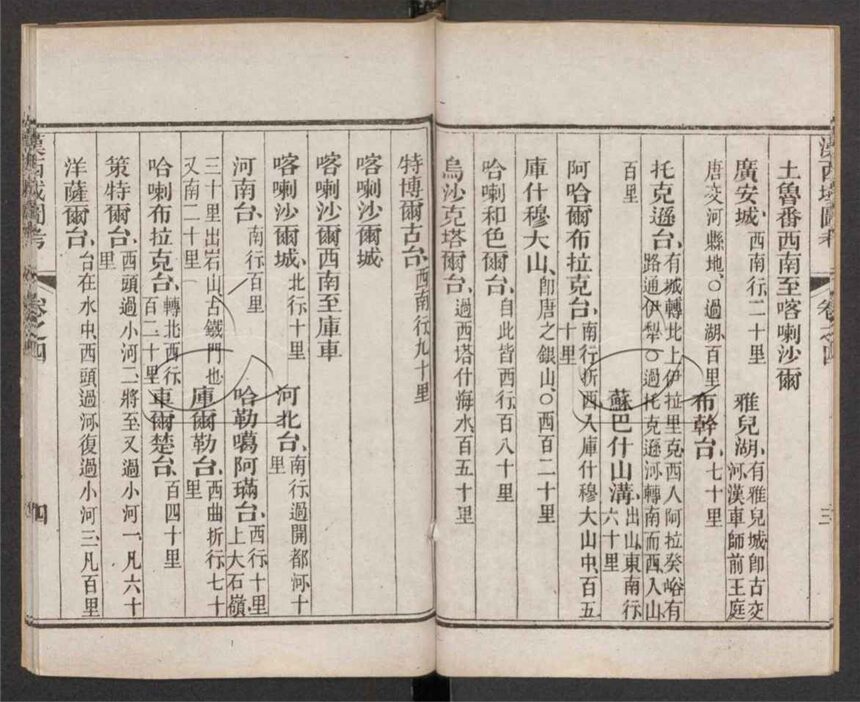 漢西域圖考
卷之四
三
土魯番西南至喀喇沙爾
廣安城、西南行二十里
雅兒湖、有雅兒城卽古交
河漢車師前王庭
唐交河縣地、○過湖百里
布幹台、七十里
托克遜台、有城轉北上伊拉里克、西人阿拉癸峪有
路通伊犁、○過托克遜河、轉南而西、入山
百里
蘇巴什山溝、出山、東南行
六十里
阿哈爾布拉克台、南行、折西、入庫什穆大山中、百五
十里
庫什穆大山、卽唐之銀山、○西百二十里
哈喇和色爾台、自此皆西行、百八十里
烏沙克塔爾台、過西塔什海水、百五十里
特博爾古台、西南行九十里
喀喇沙爾城
喀喇沙爾西南至庫車
喀喇沙爾城、北行十里
河北台、南行、過開都河、十
里
河南台、南行百里
哈勒噶阿璊台、西行、十里
上大石嶺、
三十里出岩山古鐵門也
又南二十里
庫爾勒台、西曲折行、七十
里
哈喇布拉克台、轉北西行、
百二十里
車爾楚台、百四十里
策特爾台、西頭過小河二、將至、又過小河一、凡六十
里
洋薩爾台、台在水中、西頭過河、復過小河三、凡百里
漢西域圖考
卷之四
四